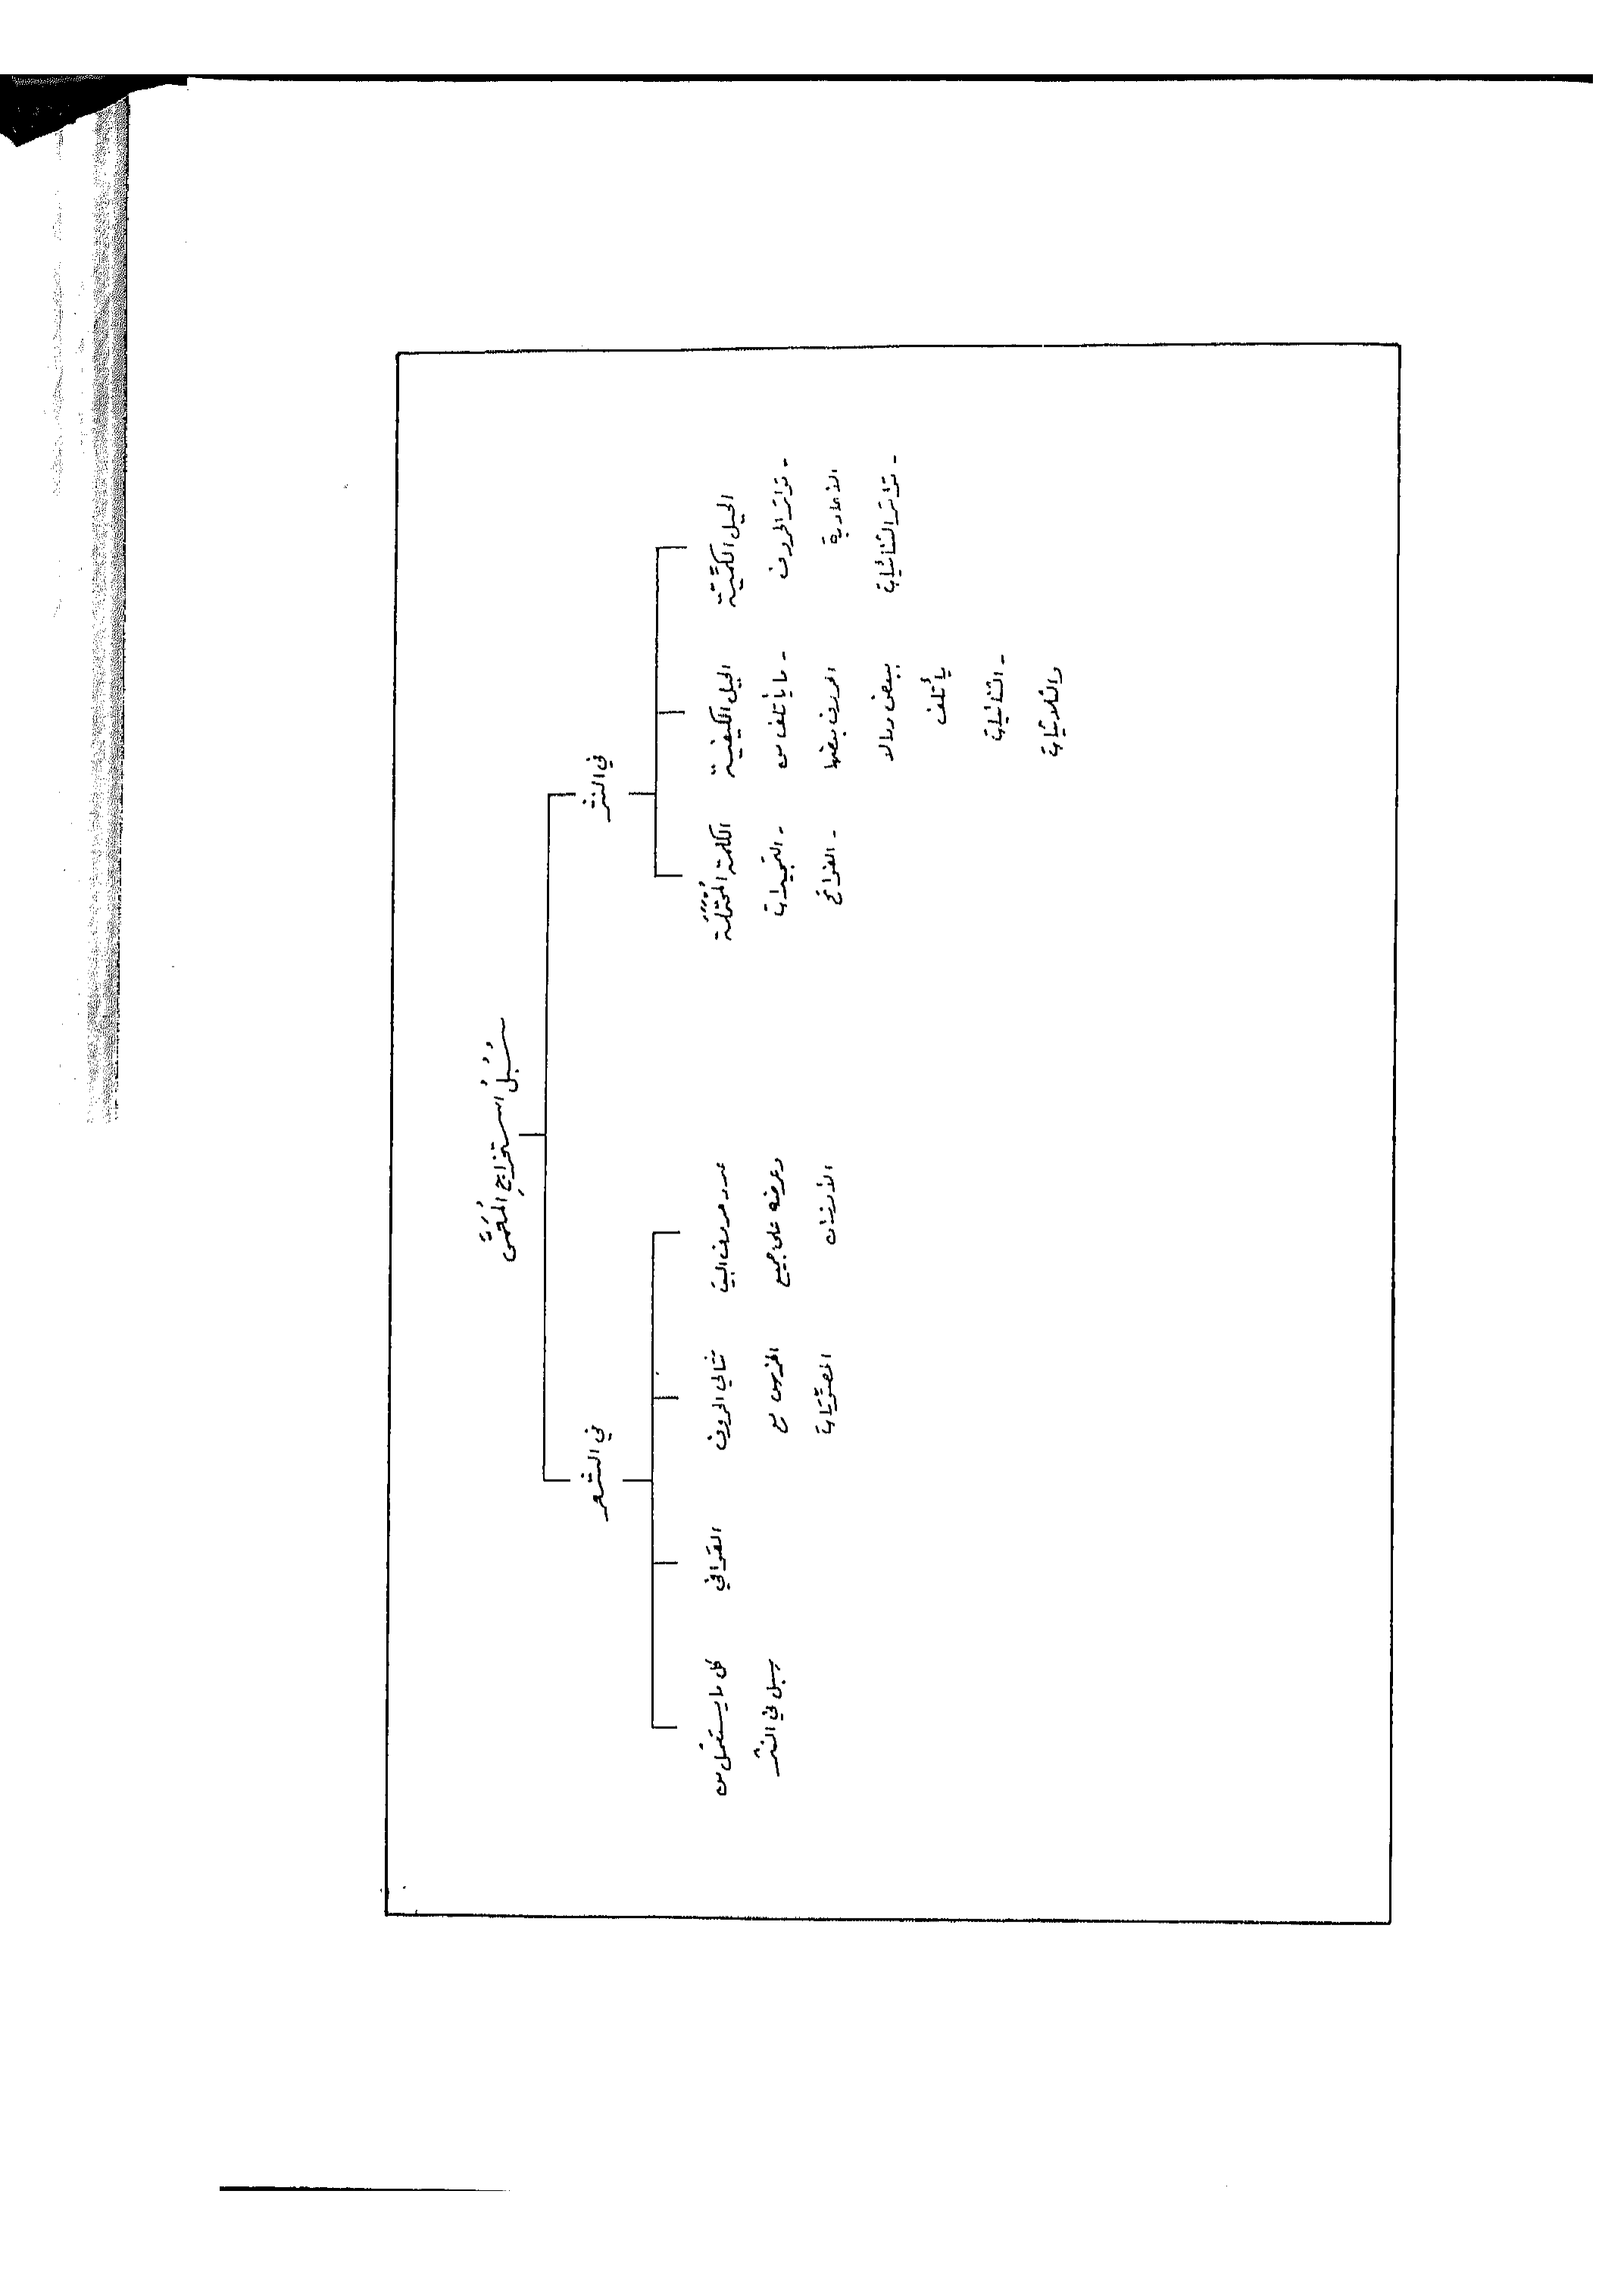 سُبُلُ استخراجِ المُعَمَّى
في النثر
الحيل الكميّة
- تواتر الحروف
الأحادية
- تواتر الثنائيات
الحيل الكيفية
- ما يأتلف من
الحروف بعضها
ببعض وما لا
يأتلف
- الثنائيات
والثلاثيات
الكلمة المُحْتَمَلَة
- التمجيدات
- الفواتح
في الشعر
عدد حروف البيت
وعرضه على جميع
الأوزان
تتالي الحروف
الخرس مع
المصوّتات
القوافي
كل ما يستعمل من
سبل في النثر